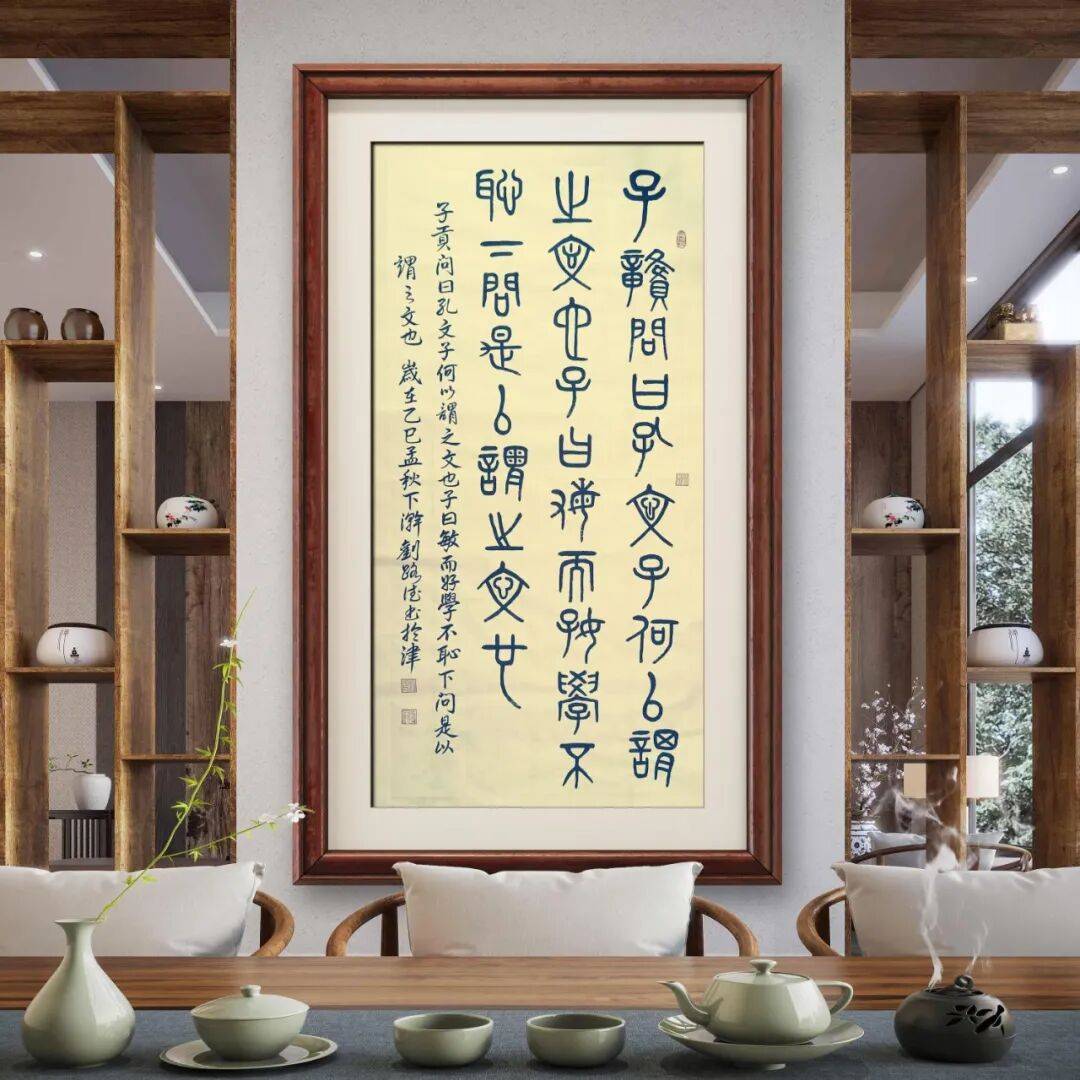 子贛問曰孔文子何以謂
之文也子曰敏而好學不
恥下問是以謂之文也
子貢問曰孔文子何以謂之文也子曰敏而好學不恥下問是以
謂之文也 歲在乙巳孟秋下澣劉路書於津